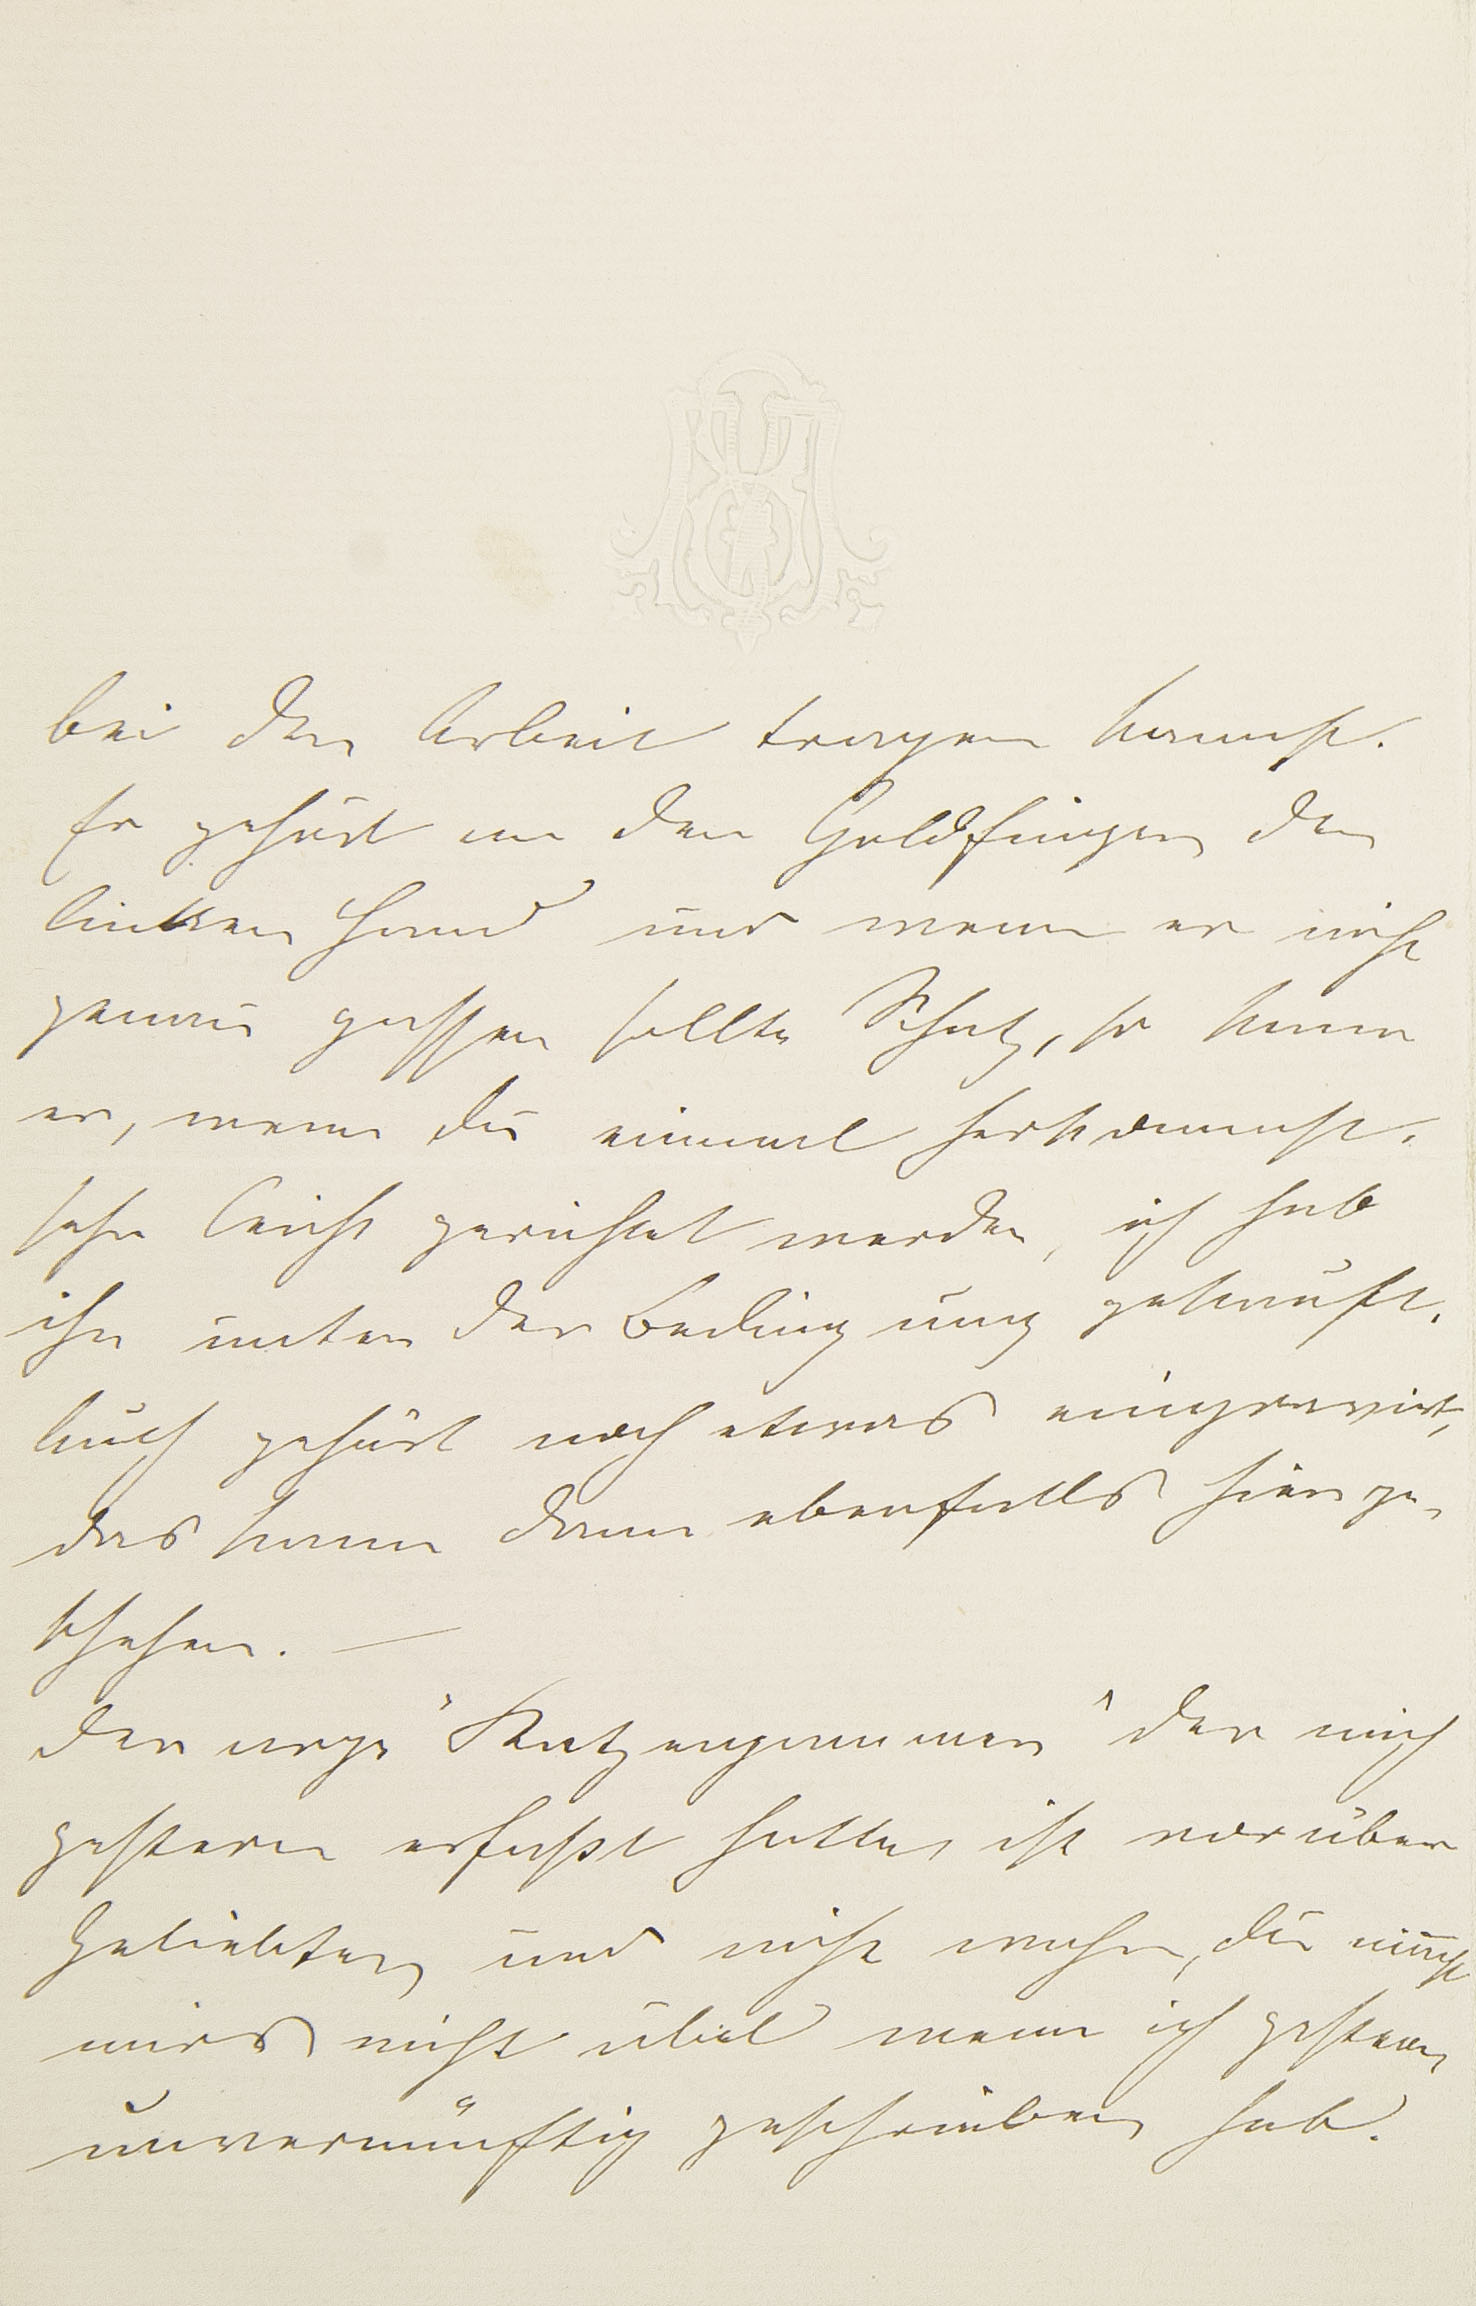 bei der Arbeit tragen kannst.
Er gehört an den Goldfinger der
linken Hand und wenn er nicht
genau passen sollte Schatz, so kann
er, wenn du einmal herkommst,
sehr leicht gerichtet werden, ich hab
ihn unter der Bedingung gekauft.
Auch gehört noch etwas eingravirt,
das kann dann ebenfalls hier ge-
schehen. —
Der arge "Katzenjammer" der mich
gestern erfaßt hatte, ist vorüber
Geliebter, und nicht wahr, du nimmst
mirs nicht übel wenn ich gestern
unvernünftig geschrieben hab.